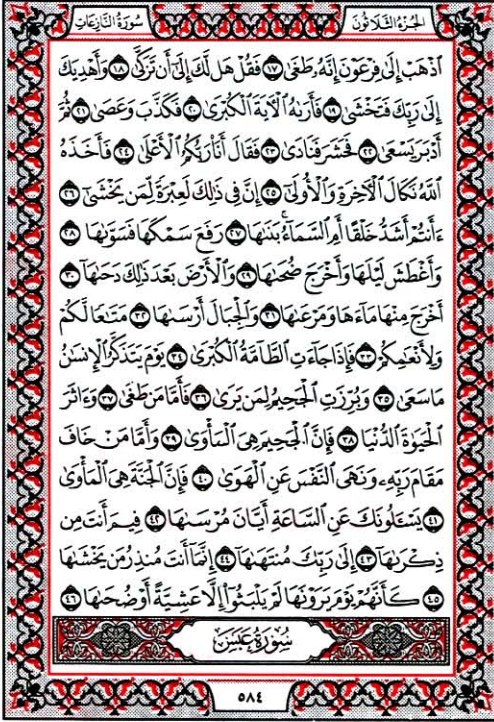 الجزء الثلاثون
سورة النازعات
ٱذۡهَبۡ إِلَىٰ فِرۡعَوۡنَ إِنَّهُۥ طَغَىٰ ١٧ فَقُلۡ هَل لَّكَ إِلَىٰٓ أَن تَزَكَّىٰ ١٨ وَأَهۡدِيَكَ
إِلَىٰ رَبِّكَ فَتَخۡشَىٰ ١٩ فَأَرَىٰهُ ٱلۡأٓيَةَ ٱلۡكُبۡرَىٰ ٢٠ فَكَذَّبَ وَعَصَىٰ ٢١ ثُمَّ
أَدۡبَرَ يَسۡعَىٰ ٢٢ فَحَشَرَ فَنَادَىٰ ٢٣ فَقَالَ أَنَا۠ رَبُّكُمُ ٱلۡأَعۡلَىٰ ٢٤ فَأَخَذَهُ
ٱللَّهُ نَكَالَ ٱلۡأٓخِرَةِ وَٱلۡأُولَىٰٓ ٢٥ إِنَّ فِي ذَٰلِكَ لَعِبۡرَةٗ لِّمَن يَخۡشَىٰٓ ٢٦
ءَأَنتُمۡ أَشَدُّ خَلۡقًا أَمِ ٱلسَّمَآءُۚ بَنَىٰهَا ٢٧ رَفَعَ سَمۡكَهَا فَسَوَّىٰهَا ٢٨
وَأَغۡطَشَ لَيۡلَهَا وَأَخۡرَجَ ضُحَىٰهَا ٢٩ وَٱلۡأَرۡضَ بَعۡدَ ذَٰلِكَ دَحَىٰهَآ ٣٠
أَخۡرَجَ مِنۡهَا مَآءَهَا وَمَرۡعَىٰهَا ٣١ وَٱلۡجِبَالَ أَرۡسَىٰهَا ٣٢ مَتَٰعٗا لَّكُمۡ
وَلِأَنۡعَٰمِكُمۡ ٣٣ فَإِذَا جَآءَتِ ٱلطَّآمَّةُ ٱلۡكُبۡرَىٰ ٣٤ يَوۡمَ يَتَذَكَّرُ ٱلۡإِنسَٰنُ
مَا سَعَىٰ ٣٥ وَبُرِّزَتِ ٱلۡجَحِيمُ لِمَن يَرَىٰ ٣٦ فَأَمَّا مَن طَغَىٰ ٣٧ وَءَاثَرَ
ٱلۡحَيَوٰةَ ٱلدُّنۡيَا ٣٨ فَإِنَّ ٱلۡجَحِيمَ هِيَ ٱلۡمَأۡوَىٰ ٣٩ وَأَمَّا مَنۡ خَافَ
مَقَامَ رَبِّهِۦ وَنَهَى ٱلنَّفۡسَ عَنِ ٱلۡهَوَىٰ ٤٠ فَإِنَّ ٱلۡجَنَّةَ هِيَ ٱلۡمَأۡوَىٰ
٤١ يَسۡـَٔلُونَكَ عَنِ ٱلسَّاعَةِ أَيَّانَ مُرۡسَىٰهَا ٤٢ فِيمَ أَنتَ مِن
ذِكۡرَىٰهَآ ٤٣ إِلَىٰ رَبِّكَ مُنتَهَىٰهَآ ٤٤ إِنَّمَآ أَنتَ مُنذِرُ مَن يَخۡشَىٰهَا
٤٥ كَأَنَّهُمۡ يَوۡمَ يَرَوۡنَهَا لَمۡ يَلۡبَثُوٓاْ إِلَّا عَشِيَّةً أَوۡ ضُحَىٰهَا ٤٦
سورة عبس
٥٨٤